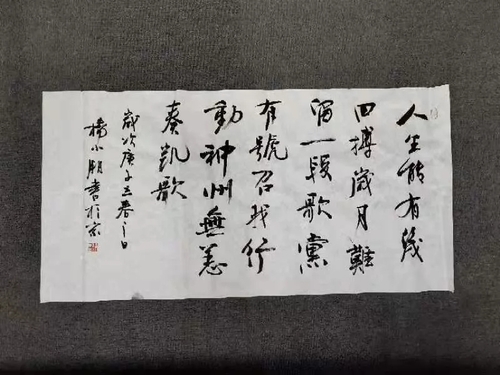 人生能有幾
回搏歲月難
留一段歌黨
有號召我行
動神州無恙
奏凱歌
歲次庚子立春之日
楊小明書於京